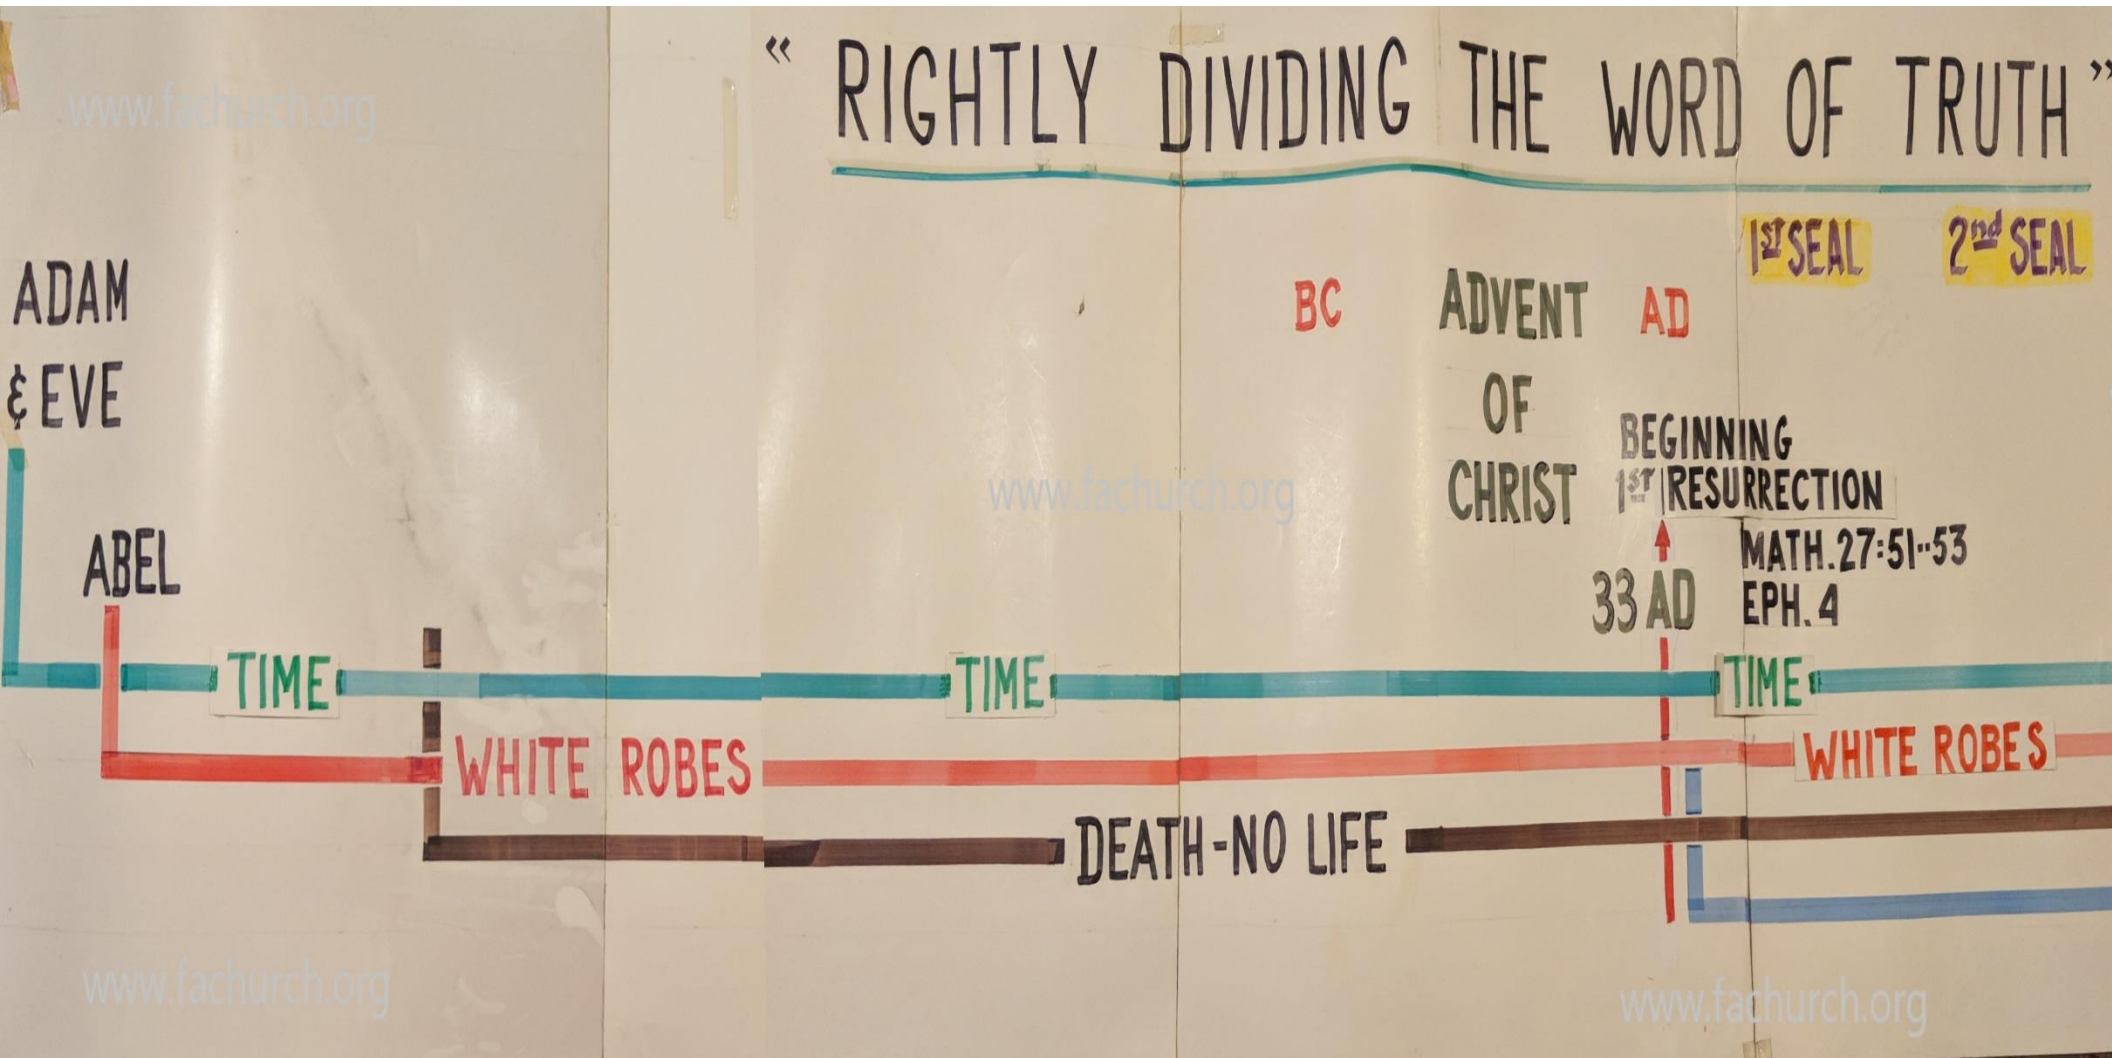 “ RIGHTLY DIVIDING THE WORD OF TRUTH ”
www.fachurch.org
1st SEAL
2nd SEAL
ADAM
& EVE
BC
ADVENT
OF
CHRIST
AD
BEGINNING
1ST RESURRECTION
MATH.27:51--53
EPH. 4
33 AD
www.fachurch.org
ABEL
TIME
TIME
TIME
WHITE ROBES
WHITE ROBES
DEATH-NO LIFE
www.fachurch.org
www.fachurch.org